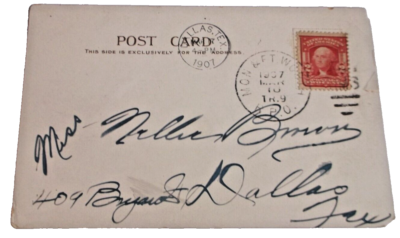 POST CARD
THIS SIDE IS EXCLUSIVELY FOR THE ADDRESS.
DALLAS, TEX.
1907
MON & FT W
1907
MAR
10
TR.9
R.P.O.
Miss Nellie Brown
409 Bryan St Dallas
Tex